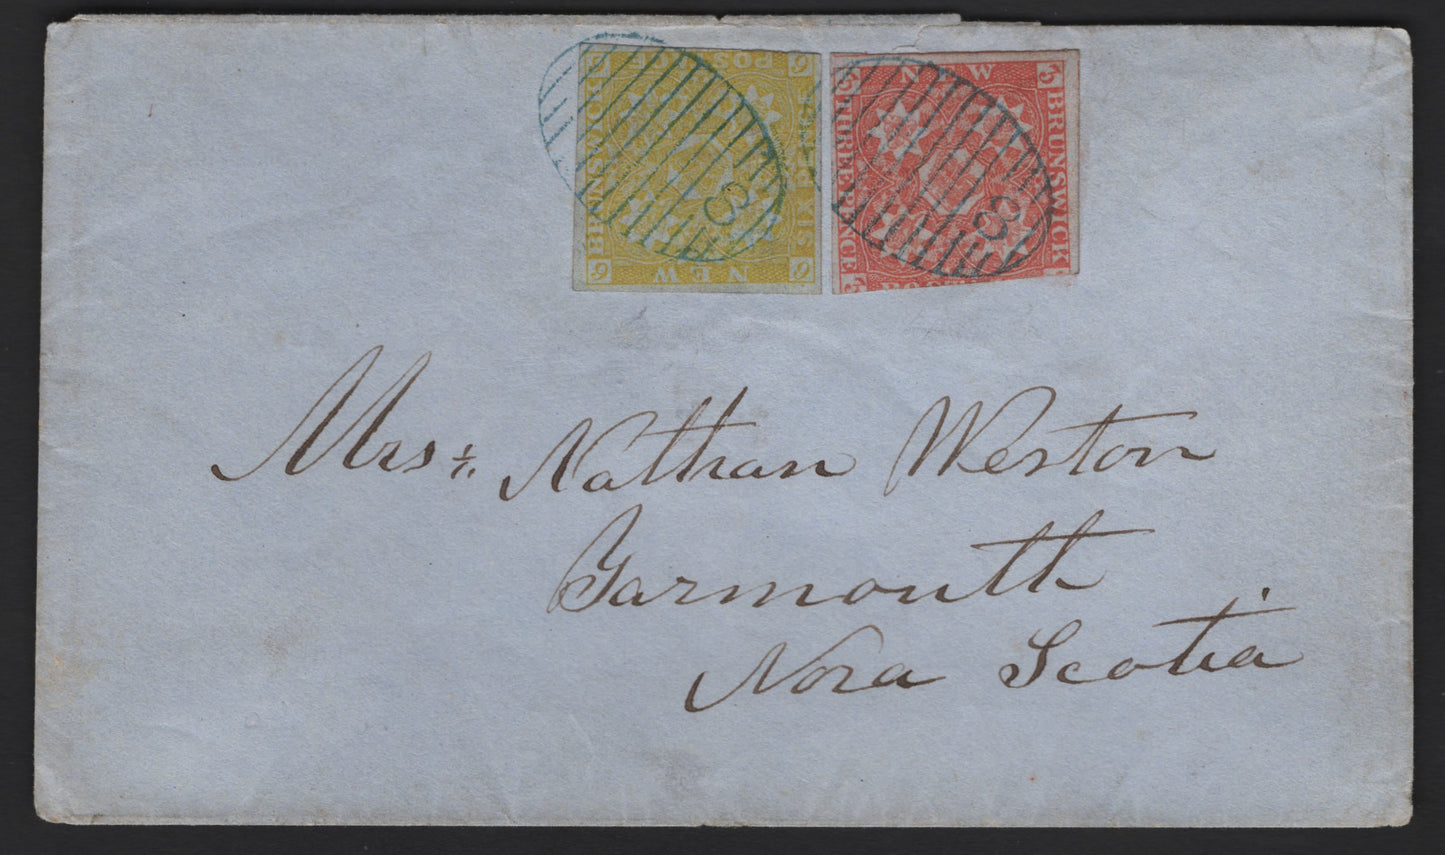 6 POSTAGE 6
BRUNSWICK
SIX PENCE
6 NEW 6
8
3 NEW 3
BRUNSWICK
THREE PENCE
3 3
8
Mrs. Nathan Weston
Yarmouth
Nova Scotia